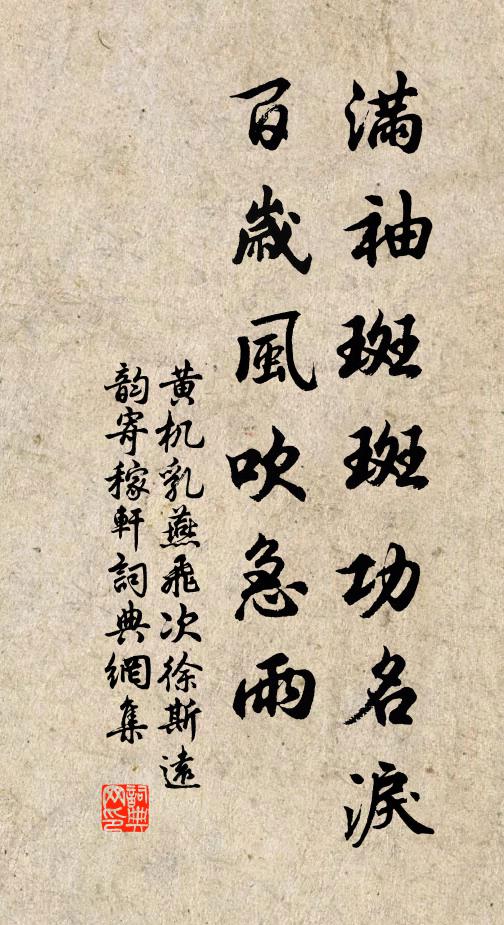 滿袖斑斑功名淚
百歲風吹急雨
黄机乳燕飛次徐斯遠
韵寄稼軒詞典網集
詞典网印